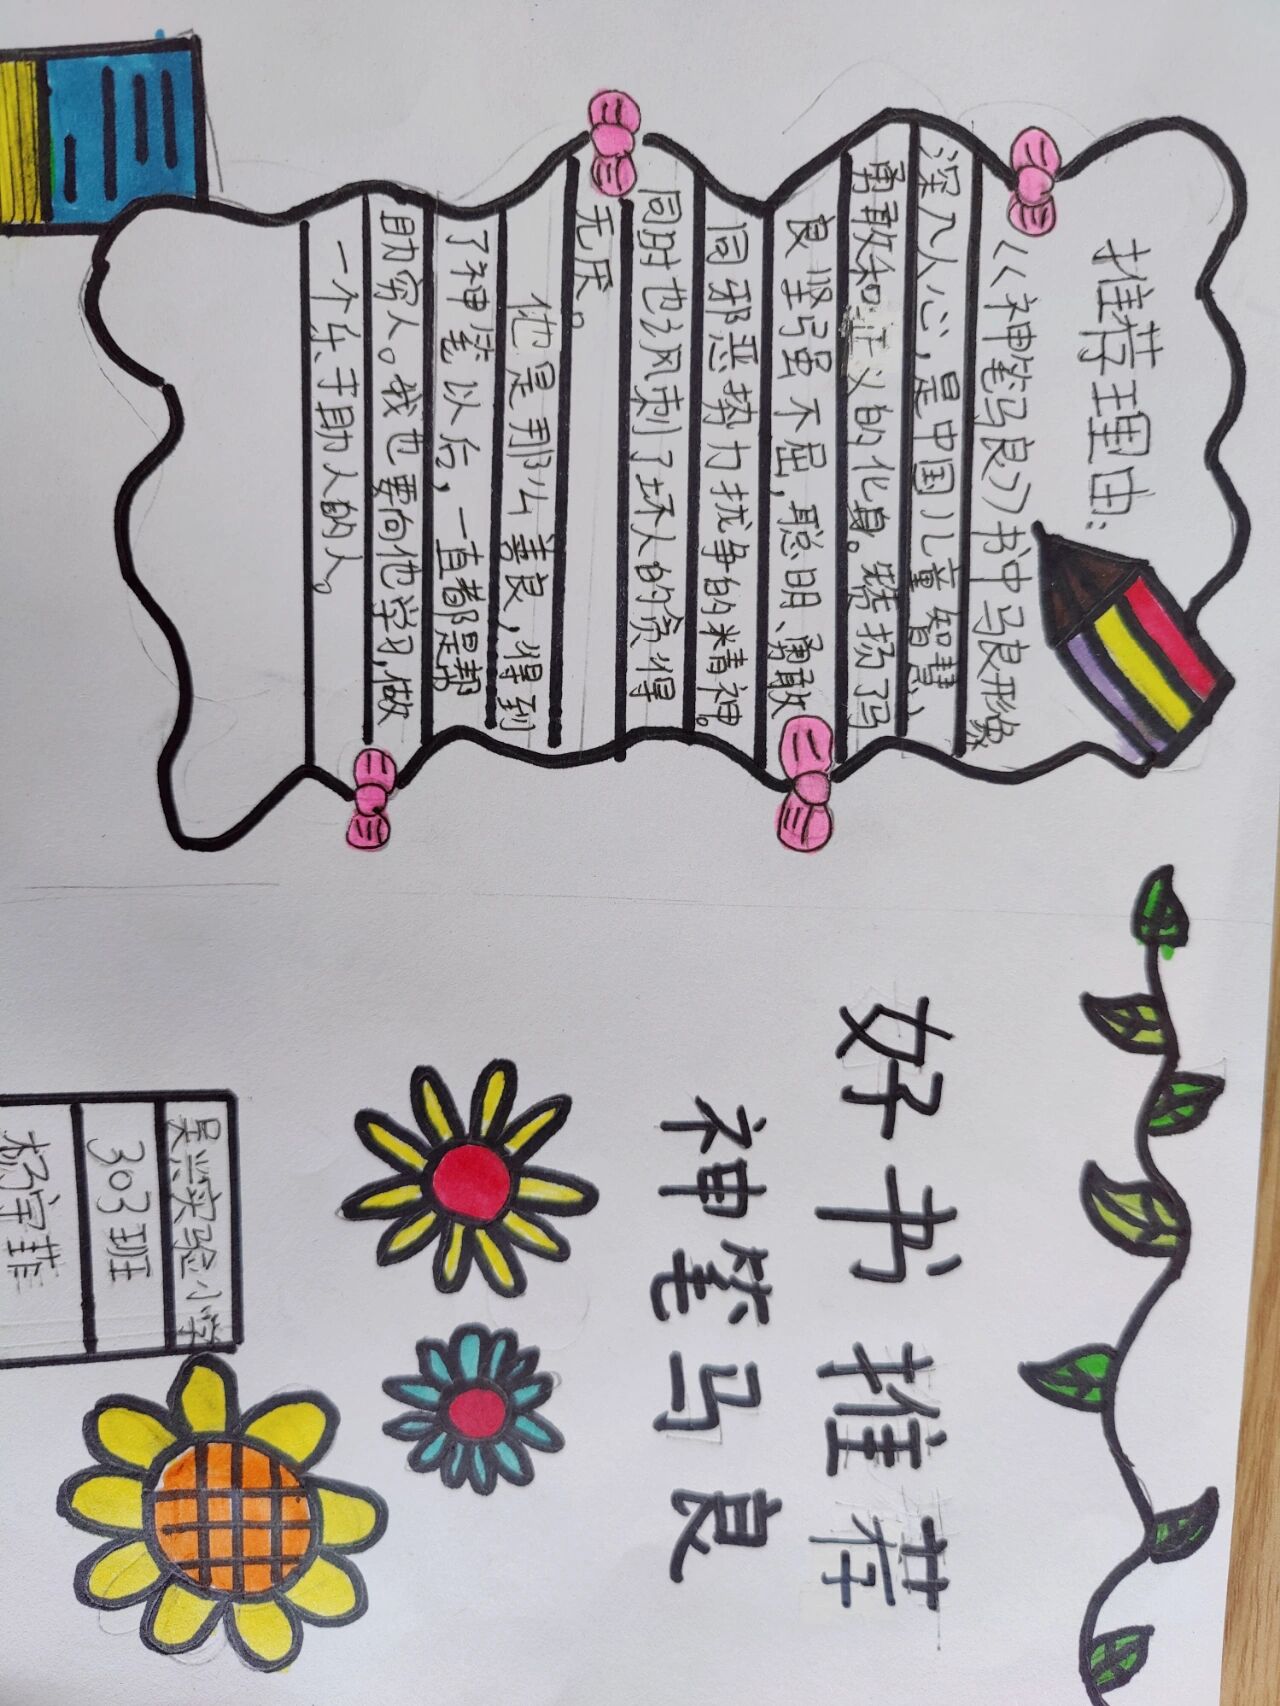 推荐理由:
《神笔马良》书中马良形象
深入人心,是中国儿童智慧、
勇敢和正义的化身。赞扬了马
良坚强不屈,聪明、勇敢
同邪恶势力抗争的精神。
同时也讽刺了坏人的贪得
无厌。
他是那么善良,得到
了神笔以后,一直都是帮
助穷人。我也要向他学习,做
一个乐于助人的人。
好书推荐
神笔马良
吴兴实验小学
303班